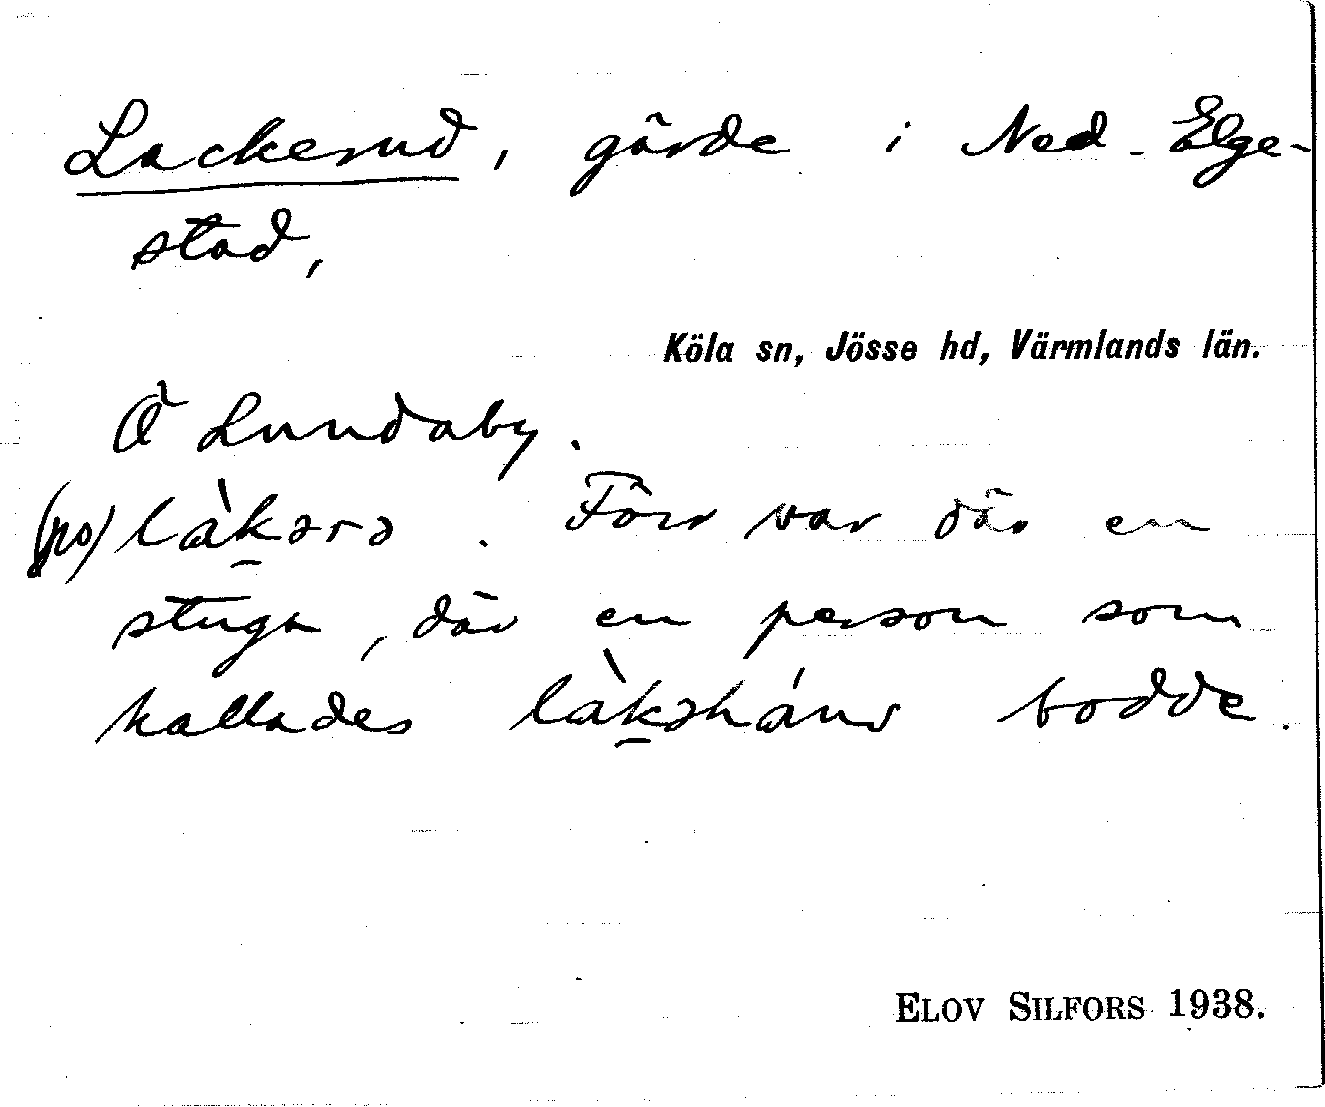 Lackerud, gärde i Ned. Elge-
stad,
Köla sn, Jösse hd, Värmlands län.
Ö Lundaby.
(po) làk̠ərə. Förr var där en
stuga, där en person som
kallades làk̠əháns bodde.
ELOV SILFORS 1938.